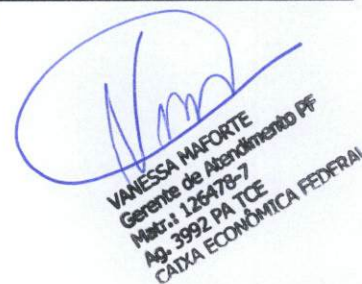 VANESSA MAFORTE
Gerente de Atendimento PF
Matr.: 126478-7
Ag. 3992 PA TCE
CAIXA ECONÔMICA FEDERAL